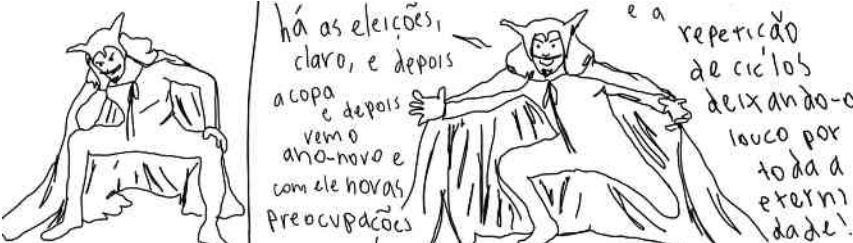 há as eleições,
claro, e depois
a copa
e depois
vem o
ano-novo e
com ele novas
preocupações
e a
repetição
de ciclos
deixando-o
louco por
toda a
eterni
dade!